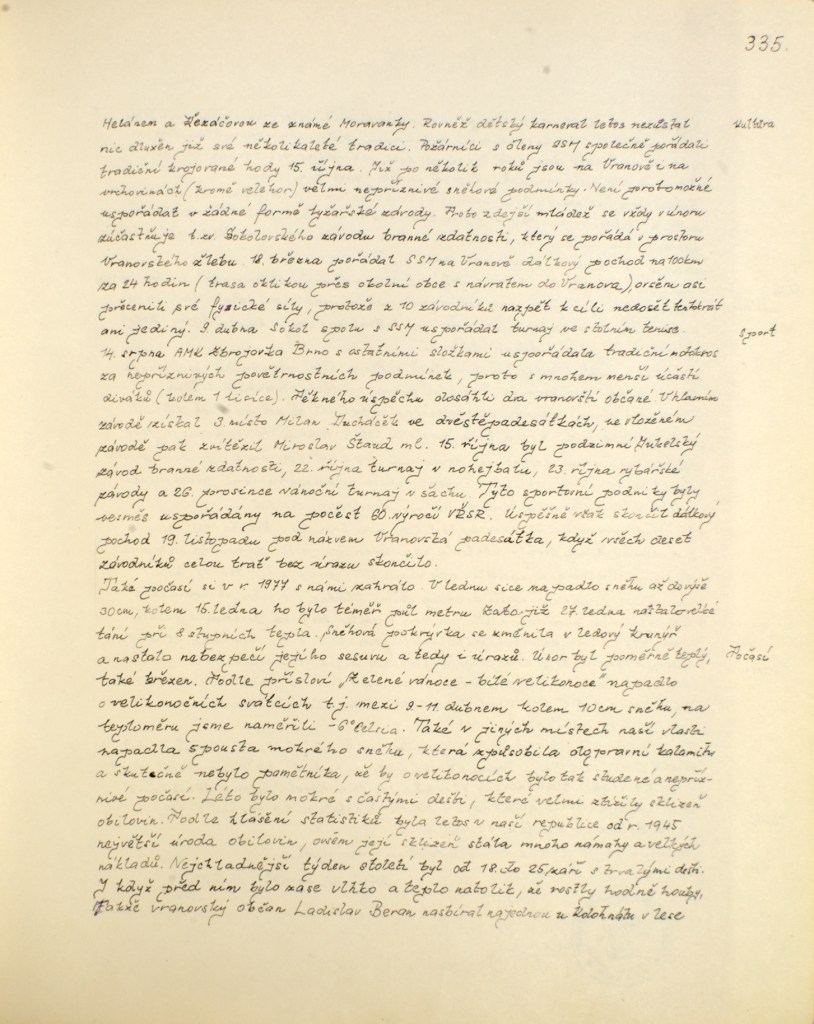 335.
Helánem a Řezáčovou ze známé Moravanky. Rovněž dětský karneval letos nezůstal
Kultura
nic dlužen již své několikaleté tradici. Požárníci s členy SSM společně pořádali
tradiční krojované hody 15. října. Již po několik roků jsou na Vranově i na
vrchovinách (kromě velehor) velmi nepříznivé sněhové podmínky. Není proto možné
uspořádat v žádné formě lyžařské závody. Proto zdejší mládež se vždy v únoru
zúčastňuje t.zv. Sokolovského závodu branné zdatnosti, který se pořádá v prostoru
Vranovského žlebu. 18. března pořádal SSM na Vranově dálkový pochod na 100km
za 24 hodin (trasa oklikou přes okolní obce s návratem do Vranova), ovšem asi
přecenili své fyzické síly, protože z 10 závodníků nazpět k cíli nedošel tentokrát
ani jediný. 9. dubna Sokol spolu s SSM uspořádal turnaj ve stolním tenise.
Sport
14. srpna AMK Zbrojovka Brno s ostatními složkami uspořádala tradiční motokros
za nepříznivých povětrnostních podmínek, proto s mnohem menší účastí
diváků (kolem 1 tisíce). Pěkného úspěchu dosáhli dva vranovští občané. V hlavním
závodě získal 3. místo Milan Ducháček ve dvěstěpadesátkách, ve vloženém
závodě pak zvítězil Miroslav Štaud ml. 15. října byl podzimní Dukelský
závod branné zdatnosti, 22. října turnaj v nohejbalu, 23. října rybářské
závody a 26. prosince vánoční turnaj v šachu. Tyto sportovní podniky byly
vesměs uspořádány na počest 60. výročí VŘSR. Úspěšně však skončil dálkový
pochod 19. listopadu pod názvem Vranovská padesátka, když všech deset
závodníků celou trať bez úrazu skončilo.
Také počasí si v r. 1977 s námi zahrálo. V lednu sice napadlo sněhu až do výše
30cm, kolem 15. ledna ho bylo téměř půl metru zato již 27. ledna nastalo velké
tání při 8 stupních tepla. Sněhová pokrývka se změnila v ledový krunýř
a nastalo nebezpečí jejího sesuvu a tedy i úrazů. Únor byl poměrně teplý,
Počasí
také březen. Podle přísloví „Zelené vánoce – bílé velikonoce" napadlo
o velikonočních svátcích t.j. mezi 9-11. dubnem kolem 10cm sněhu, na
teploměru jsme naměřili -6° Celsia. Také v jiných místech naší vlasti
napadla spousta mokrého sněhu, která způsobila dopravní kalamitu
a skutečně nebylo pamětníka, že by o velikonocích bylo tak studené a nepříz-
nivé počasí. Léto bylo mokré s častými dešti, které velmi ztížily sklizeň
obilovin. Podle hlášení statistiků byla letos v naší republice od r. 1945
největší úroda obilovin, ovšem její sklizeň stála mnoho námahy a velkých
nákladů. Nejchladnější týden století byl od 18. do 25. září s trvalými dešti.
I když před ním bylo zase vlhko a teplo natolik, že rostly hodně houby,
Takže vranovský občan Ladislav Beran nasbíral najednou u v lese